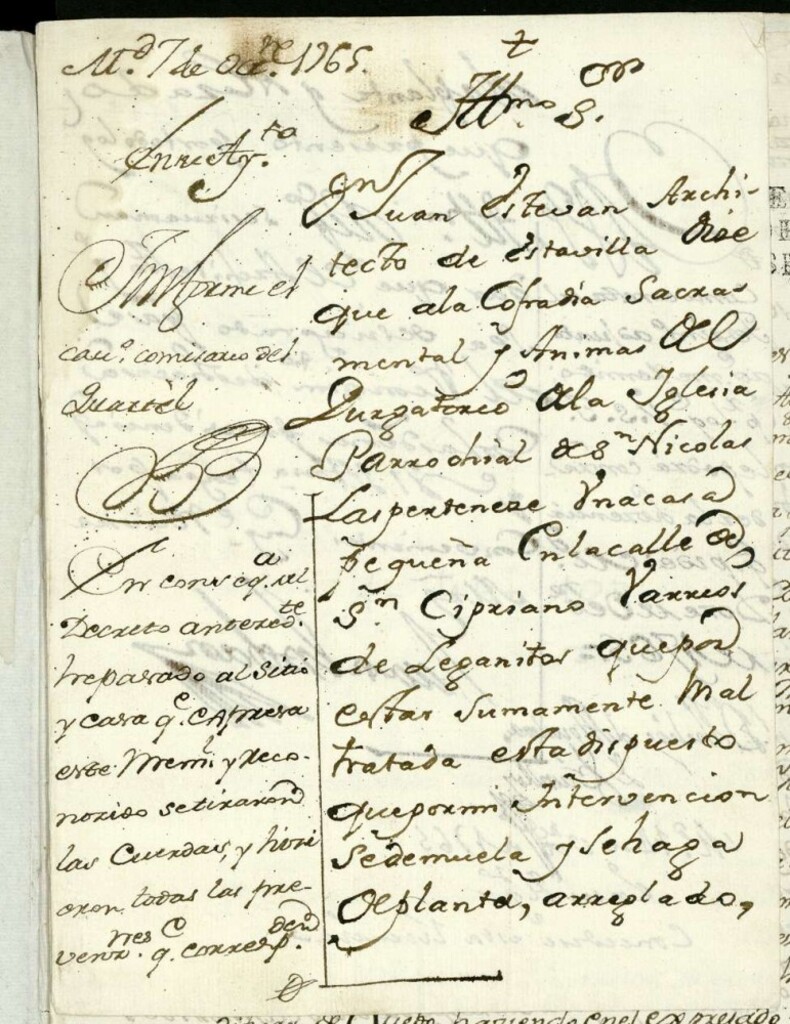 M.d 7 de Oct.re 1765.
+
Illmo S.or
En su Ay.to
Informe el
cau.o comisario del
Quartèl
En conseq.a del
Decreto anteced.te
he pasado al sitio
y casa q.e expresa
este Mem.l y reco-
nozido se tiraron
las Cuerdas, y hizi
eron todas las pre-
venz.nes q.e corresp.den
Dn Juan Estevan Archi-
tecto de esta villa dize
que ala Cofradia Sacra-
mental y Animas del
Purgatorio de la Iglesia
Parrochial de Sn Nicolas
Las perteneze Vna casa
pequeña En la calle de
Sn Cipriano Varrios
de Leganitos que por
estar sumamente Mal
tratada esta dispuesto
que por mi Intervencion
se demuela y se haga
de planta, arreglado,
haviendo en el expresado